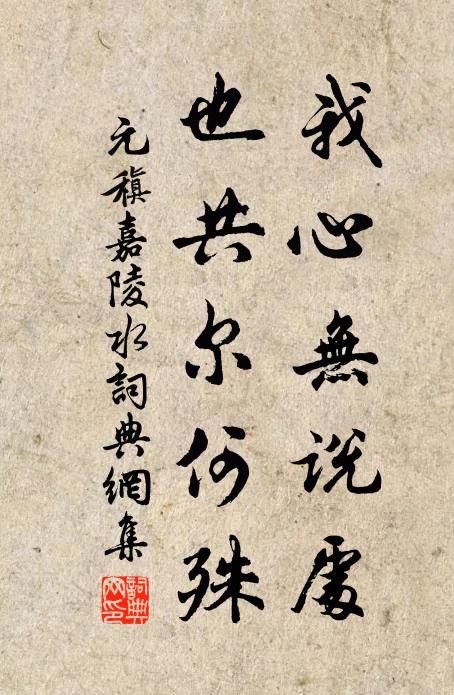 我心無說處
也共尔何殊
元稹嘉陵水詞典網集
詞典網印